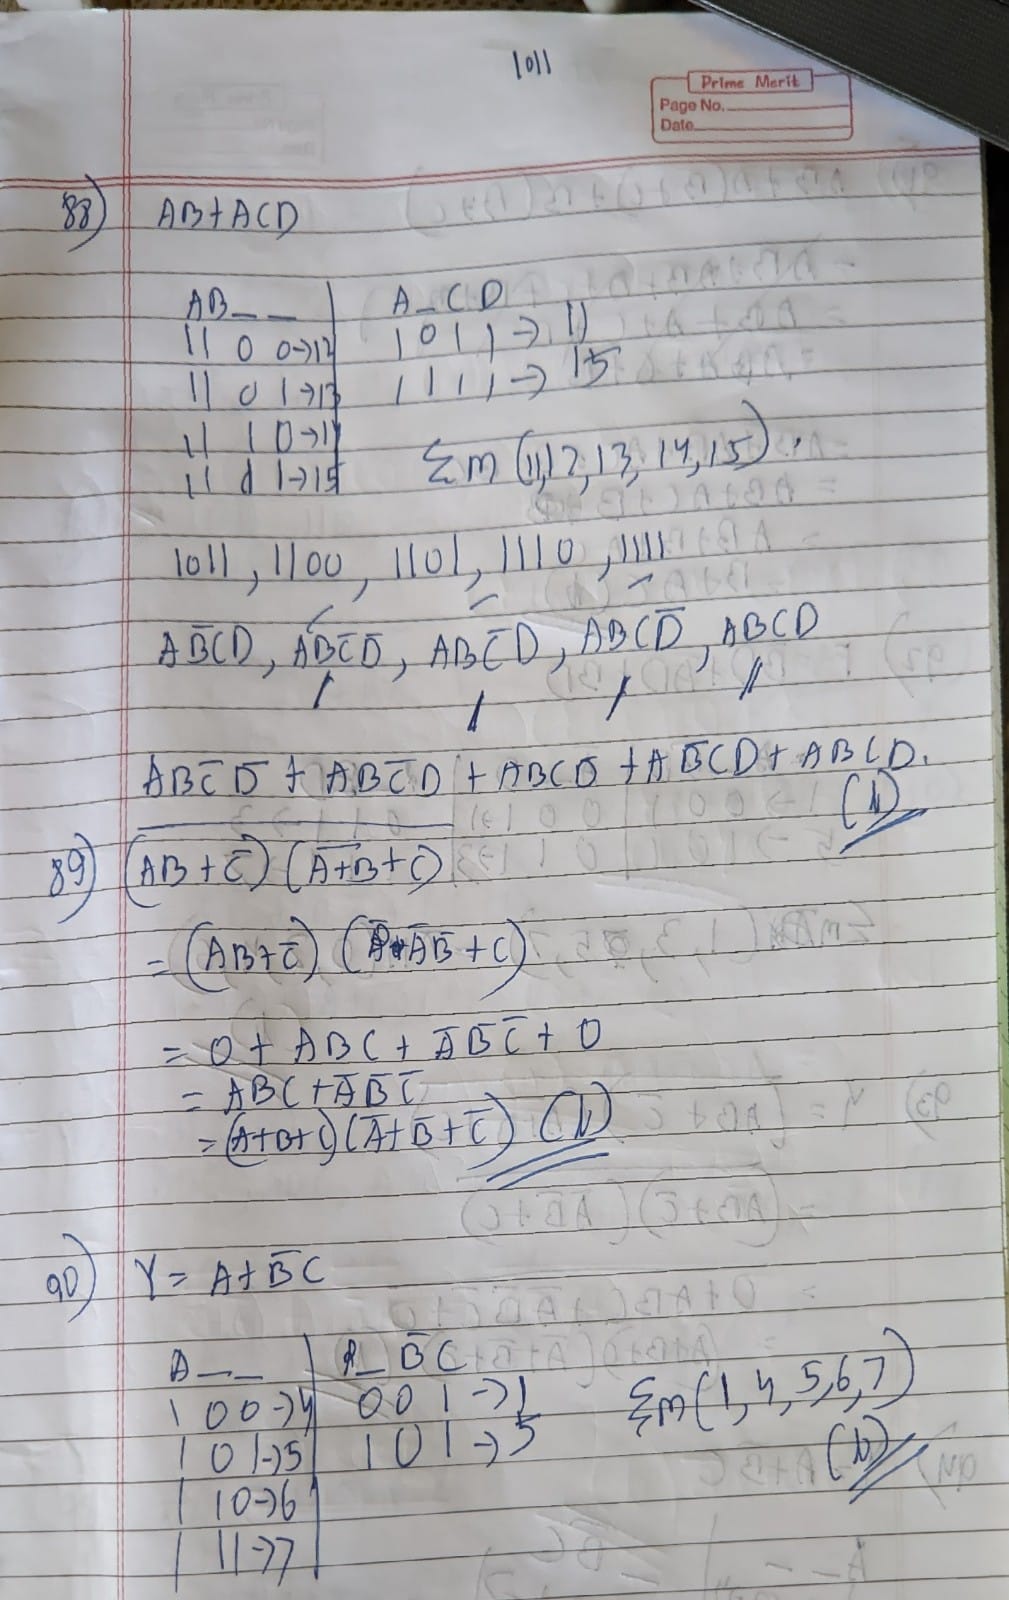 1011
Prime Merit
Page No.
Date
88) AB+ACD
AB_ _ | A_CD
11 0 0→12 | 1 0 1 1 → 11
11 0 1→13 | 1 1 1 1 → 15
11 1 0→14
11 1 1→15 Σm (11,12,13,14,15).
1011, 1100, 1101, 1110, 1111
AB̅CD, ABC̅D̅, ABC̅D, ABCD̅, ABCD
ABC̅D̅ + ABC̅D + ABCD̅ + AB̅CD + ABCD.
(b)
89) (AB + C̅) (A̅+̅B̅ + C)
= (AB+C̅) (A̅B̅ + C)
= 0 + ABC + A̅B̅C̅ + 0
= ABC + A̅B̅C̅
= (A+B+C)(A̅+B̅+C̅) (b)
90) Y = A+B̅C
A_ _ | A_B̅C
1 00→4 | 0 0 1 →1 Σm(1,4,5,6,7)
1 0 1→5 | 1 0 1 → 5 (b)
1 10→6
1 11→7